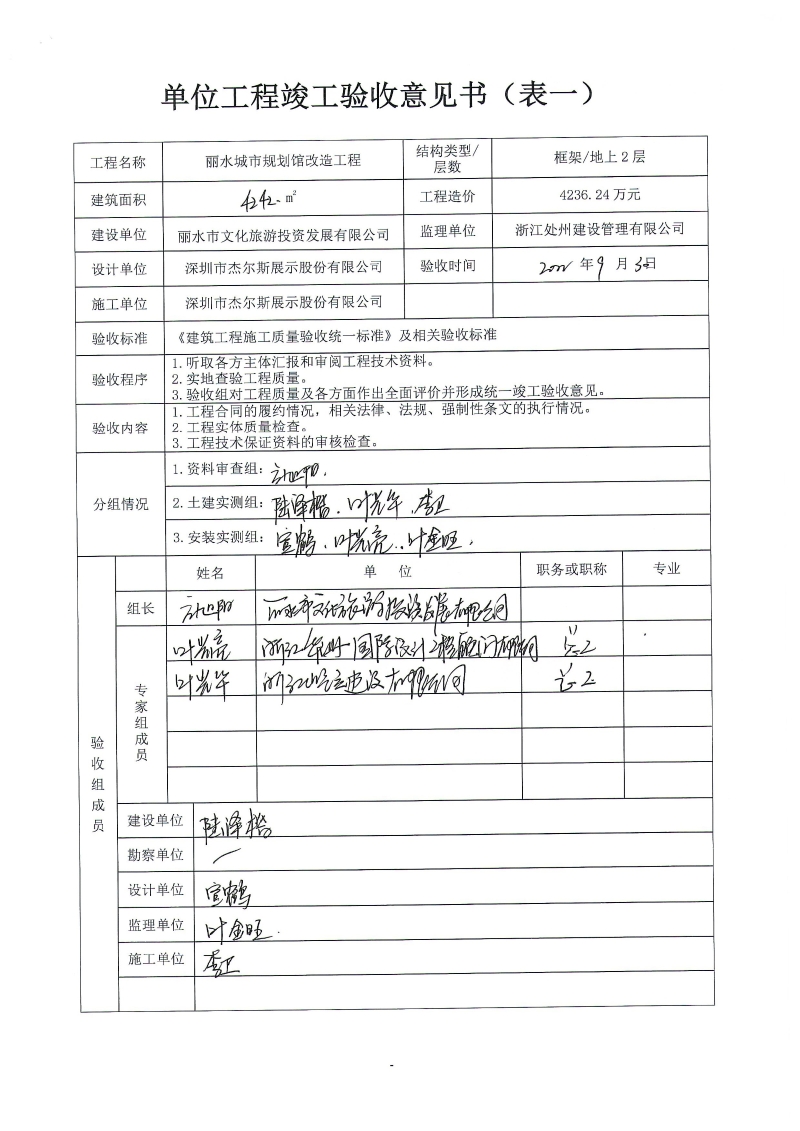 单位工程竣工验收意见书（表一）
工程名称 丽水城市规划馆改造工程 结构类型/层数 框架/地上2层
建筑面积 4242 m² 工程造价 4236.24万元
建设单位 丽水市文化旅游投资发展有限公司 监理单位 浙江处州建设管理有限公司
设计单位 深圳市杰尔斯展示股份有限公司 验收时间 年9月 日
施工单位 深圳市杰尔斯展示股份有限公司
验收标准 《建筑工程施工质量验收统一标准》及相关验收标准
验收程序
1.听取各方主体汇报和审阅工程技术资料。
2.实地查验工程质量。
3.验收组对工程质量及各方面作出全面评价并形成统一竣工验收意见。
验收内容
1.工程合同的履约情况，相关法律、法规、强制性条文的执行情况。
2.工程实体质量检查。
3.工程技术保证资料的审核检查。
分组情况
1.资料审查组：
2.土建实测组：陆泽楷、叶光华、李卫
3.安装实测组：宣鹤、叶岩亮、叶金旺
验收组成员
姓名 单 位 职务或职称 专业
组长 丽水市文化旅游投资发展有限公司
专家组成员
叶岩亮 浙江 国际设计工程顾问有限公司
叶光华 浙江 建设有限公司
建设单位 陆泽楷
勘察单位 /
设计单位 宣鹤
监理单位 叶金旺
施工单位 李卫